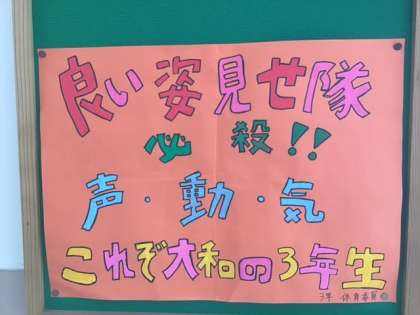 良い姿見せ隊
必殺!!
声・動・気
これぞ大和の3年生
3年 体育委員